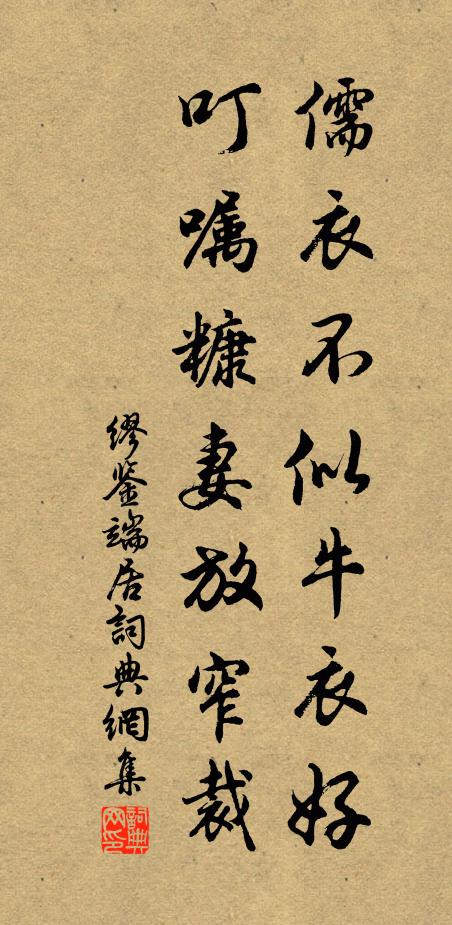 儒衣不似牛衣好
叮嘱糠妻放窄裁
繆鉴端居詞典網集
詞典網印